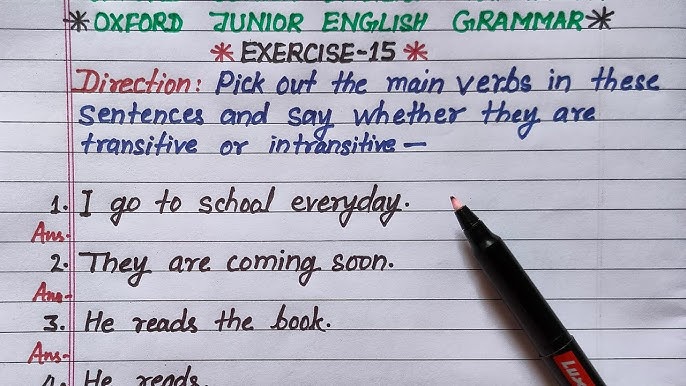 *OXFORD JUNIOR ENGLISH GRAMMAR*
* EXERCISE-15 *
Direction: Pick out the main verbs in these
sentences and say whether they are
transitive or intransitive—
1. I go to school everyday.
Ans.
2. They are coming soon.
Ans-
3. He reads the book.
Ans-
4. He reads.